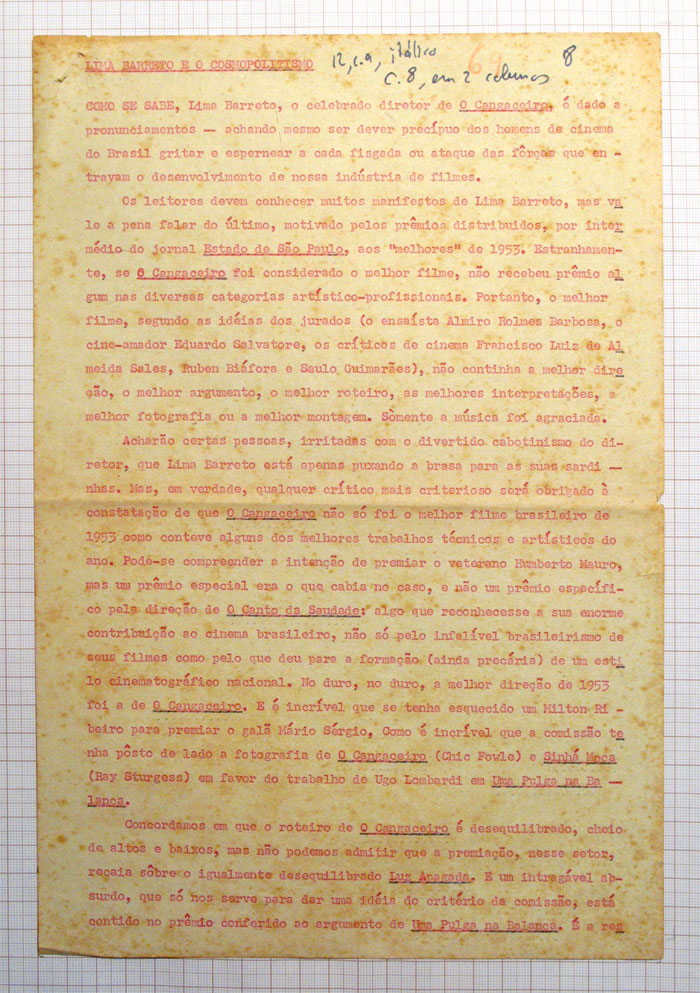 LIMA BARRETO E O COSMOPOLITISMO
12, c.a, itálico
c. 8, em 2 colunas
69
8
COMO SE SABE, Lima Barreto, o celebrado diretor de O Cangaceiro, é dado a
pronunciamentos — achando mesmo ser dever precípuo dos homens de cinema
do Brasil gritar e espernear a cada fisgada ou ataque das fôrças que en -
travam o desenvolvimento de nossa indústria de filmes.
Os leitores devem conhecer muitos manifestos de Lima Barreto, mas va
le a pena falar do último, motivado pelos prêmios distribuidos, por inter
médio do jornal Estado de São Paulo, aos "melhores" de 1953. Estranhamen-
te, se O Cangaceiro foi considerado o melhor filme, não recebeu prêmio al
gum nas diversas categorias artístico-profissionais. Portanto, o melhor
filme, segundo as idéias dos jurados (o ensaísta Almiro Rolmes Barbosa, o
cine-amador Eduardo Salvatore, os críticos de cinema Francisco Luiz de Al
meida Sales, Ruben Biáfora e Saulo Guimarães), não continha a melhor dire
ção, o melhor argumento, o melhor roteiro, as melhores interpretações, a
melhor fotografia ou a melhor montagem. Sòmente a música foi agraciada.
Acharão certas pessoas, irritadas com o divertido cabotinismo do di-
retor, que Lima Barreto está apenas puxando a brasa para as suas sardi —
nhas. Mas, em verdade, qualquer crítico mais criterioso será obrigado à
constatação de que O Cangaceiro não só foi o melhor filme brasileiro de
1953 como conteve alguns dos melhores trabalhos técnicos e artísticos do
ano. Pode-se compreender a intenção de premiar o veterano Humberto Mauro,
mas um prêmio especial era o que cabia no caso, e não um prêmio específi-
co pela direção de O Canto da Saudade: algo que reconhecesse a sua enorme
contribuição ao cinema brasileiro, não só pelo infalível brasileirismo de
seus filmes como pelo que deu para a formação (ainda precária) de um esti
lo cinematográfico nacional. No duro, no duro, a melhor direção de 1953
foi a de O Cangaceiro. E é incrível que se tenha esquecido um Milton Ri -
beiro para premiar o galã Mário Sérgio, Como é incrível que a comissão te
nha pôsto de lado a fotografia de O Cangaceiro (Chic Fowle) e Sinhá Moça
(Ray Sturgess) em favor do trabalho de Ugo Lombardi em Uma Pulga na Ba —
lança.
Concordamos em que o roteiro de O Cangaceiro é desequilibrado, cheio
de altos e baixos, mas não podemos admitir que a premiação, nesse setor,
recaia sôbre o igualmente desequilibrado Luz Apagada. E um intragável ab-
surdo, que só nos serve para dar uma idéia do critério da comissão, está
contido no prêmio conferido ao argumento de Uma Pulga na Balança. É a res